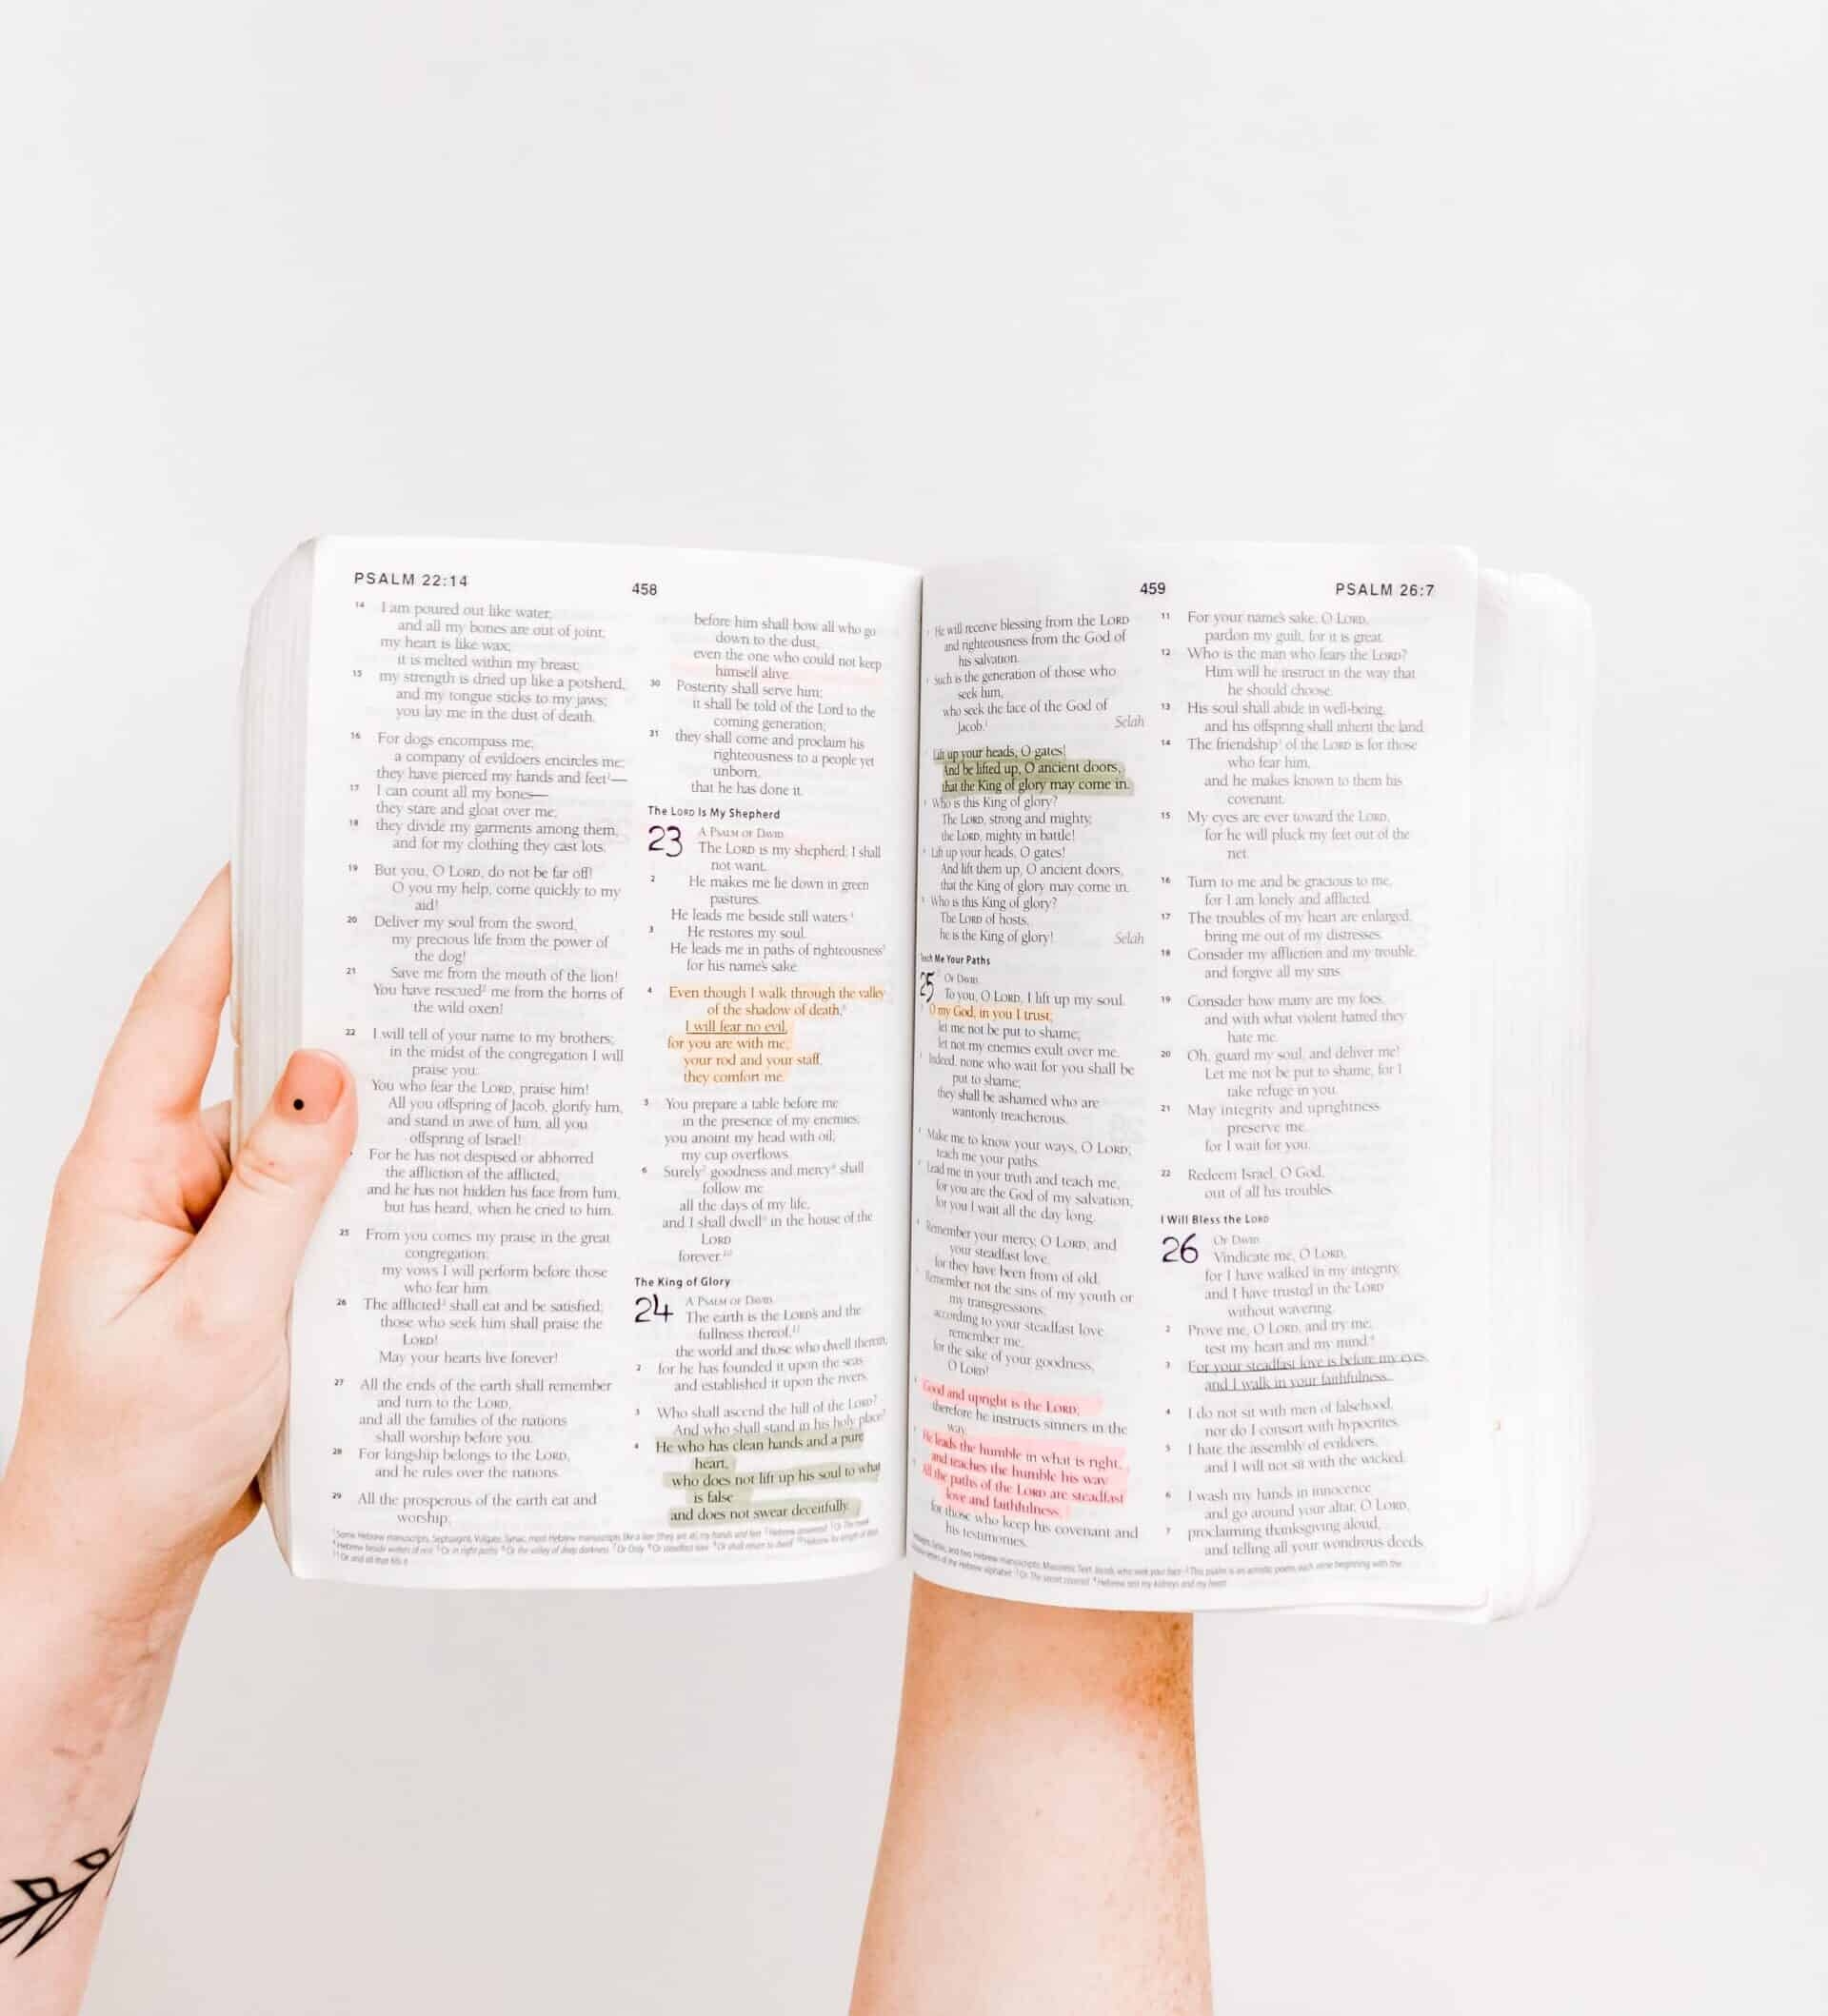 PSALM 22:14
458
14 I am poured out like water,
and all my bones are out of joint;
my heart is like wax;
it is melted within my breast;
15 my strength is dried up like a potsherd,
and my tongue sticks to my jaws;
you lay me in the dust of death.
16 For dogs encompass me;
a company of evildoers encircles me;
they have pierced my hands and feet1—
17 I can count all my bones—
they stare and gloat over me;
18 they divide my garments among them,
and for my clothing they cast lots.
19 But you, O LORD, do not be far off!
O you my help, come quickly to my
aid!
20 Deliver my soul from the sword,
my precious life from the power of
the dog!
21 Save me from the mouth of the lion!
You have rescued2 me from the horns of
the wild oxen!
22 I will tell of your name to my brothers;
in the midst of the congregation I will
praise you:
You who fear the LORD, praise him!
All you offspring of Jacob, glorify him,
and stand in awe of him, all you
offspring of Israel!
For he has not despised or abhorred
the affliction of the afflicted,
and he has not hidden his face from him,
but has heard, when he cried to him.
25 From you comes my praise in the great
congregation;
my vows I will perform before those
who fear him.
26 The afflicted3 shall eat and be satisfied;
those who seek him shall praise the
LORD!
May your hearts live forever!
27 All the ends of the earth shall remember
and turn to the LORD,
and all the families of the nations
shall worship before you.
28 For kingship belongs to the LORD,
and he rules over the nations.
29 All the prosperous of the earth eat and
worship;
before him shall bow all who go
down to the dust,
even the one who could not keep
himself alive.
30 Posterity shall serve him;
it shall be told of the Lord to the
coming generation;
31 they shall come and proclaim his
righteousness to a people yet
unborn,
that he has done it.
The LORD Is My Shepherd
23 A PSALM OF DAVID.
The LORD is my shepherd; I shall
not want.
2 He makes me lie down in green
pastures.
He leads me beside still waters.4
3 He restores my soul.
He leads me in paths of righteousness5
for his name's sake.
4 Even though I walk through the valley
of the shadow of death,6
I will fear no evil,
for you are with me;
your rod and your staff,
they comfort me.
5 You prepare a table before me
in the presence of my enemies;
you anoint my head with oil;
my cup overflows.
6 Surely7 goodness and mercy8 shall
follow me
all the days of my life,
and I shall dwell9 in the house of the
LORD
forever.10
The King of Glory
24 A PSALM OF DAVID.
The earth is the LORD's and the
fullness thereof,11
the world and those who dwell therein,
2 for he has founded it upon the seas
and established it upon the rivers.
3 Who shall ascend the hill of the LORD?
And who shall stand in his holy place?
4 He who has clean hands and a pure
heart,
who does not lift up his soul to what
is false
and does not swear deceitfully.
459
PSALM 26:7
He will receive blessing from the LORD
and righteousness from the God of
his salvation.
Such is the generation of those who
seek him,
who seek the face of the God of
Jacob.1 Selah
Lift up your heads, O gates!
And be lifted up, O ancient doors,
that the King of glory may come in.
Who is this King of glory?
The LORD, strong and mighty,
the LORD, mighty in battle!
Lift up your heads, O gates!
And lift them up, O ancient doors,
that the King of glory may come in.
Who is this King of glory?
The LORD of hosts,
he is the King of glory! Selah
Teach Me Your Paths
25 OF DAVID.
To you, O LORD, I lift up my soul.
O my God, in you I trust;
let me not be put to shame;
let not my enemies exult over me.
Indeed, none who wait for you shall be
put to shame;
they shall be ashamed who are
wantonly treacherous.
Make me to know your ways, O LORD;
teach me your paths.
Lead me in your truth and teach me,
for you are the God of my salvation;
for you I wait all the day long.
Remember your mercy, O LORD, and
your steadfast love,
for they have been from of old.
Remember not the sins of my youth or
my transgressions;
according to your steadfast love
remember me,
for the sake of your goodness,
O LORD!
Good and upright is the LORD;
therefore he instructs sinners in the
way.
He leads the humble in what is right,
and teaches the humble his way.
All the paths of the LORD are steadfast
love and faithfulness,
for those who keep his covenant and
his testimonies.
11 For your name's sake, O LORD,
pardon my guilt, for it is great.
12 Who is the man who fears the LORD?
Him will he instruct in the way that
he should choose.
13 His soul shall abide in well-being,
and his offspring shall inherit the land.
14 The friendship3 of the LORD is for those
who fear him,
and he makes known to them his
covenant.
15 My eyes are ever toward the LORD,
for he will pluck my feet out of the
net.
16 Turn to me and be gracious to me,
for I am lonely and afflicted.
17 The troubles of my heart are enlarged;
bring me out of my distresses.
18 Consider my affliction and my trouble,
and forgive all my sins.
19 Consider how many are my foes,
and with what violent hatred they
hate me.
20 Oh, guard my soul, and deliver me!
Let me not be put to shame, for I
take refuge in you.
21 May integrity and uprightness
preserve me,
for I wait for you.
22 Redeem Israel, O God,
out of all his troubles.
I Will Bless the LORD
26 OF DAVID.
Vindicate me, O LORD,
for I have walked in my integrity,
and I have trusted in the LORD
without wavering.
2 Prove me, O LORD, and try me;
test my heart and my mind.4
3 For your steadfast love is before my eyes,
and I walk in your faithfulness.
4 I do not sit with men of falsehood,
nor do I consort with hypocrites.
5 I hate the assembly of evildoers,
and I will not sit with the wicked.
6 I wash my hands in innocence
and go around your altar, O LORD,
7 proclaiming thanksgiving aloud,
and telling all your wondrous deeds.